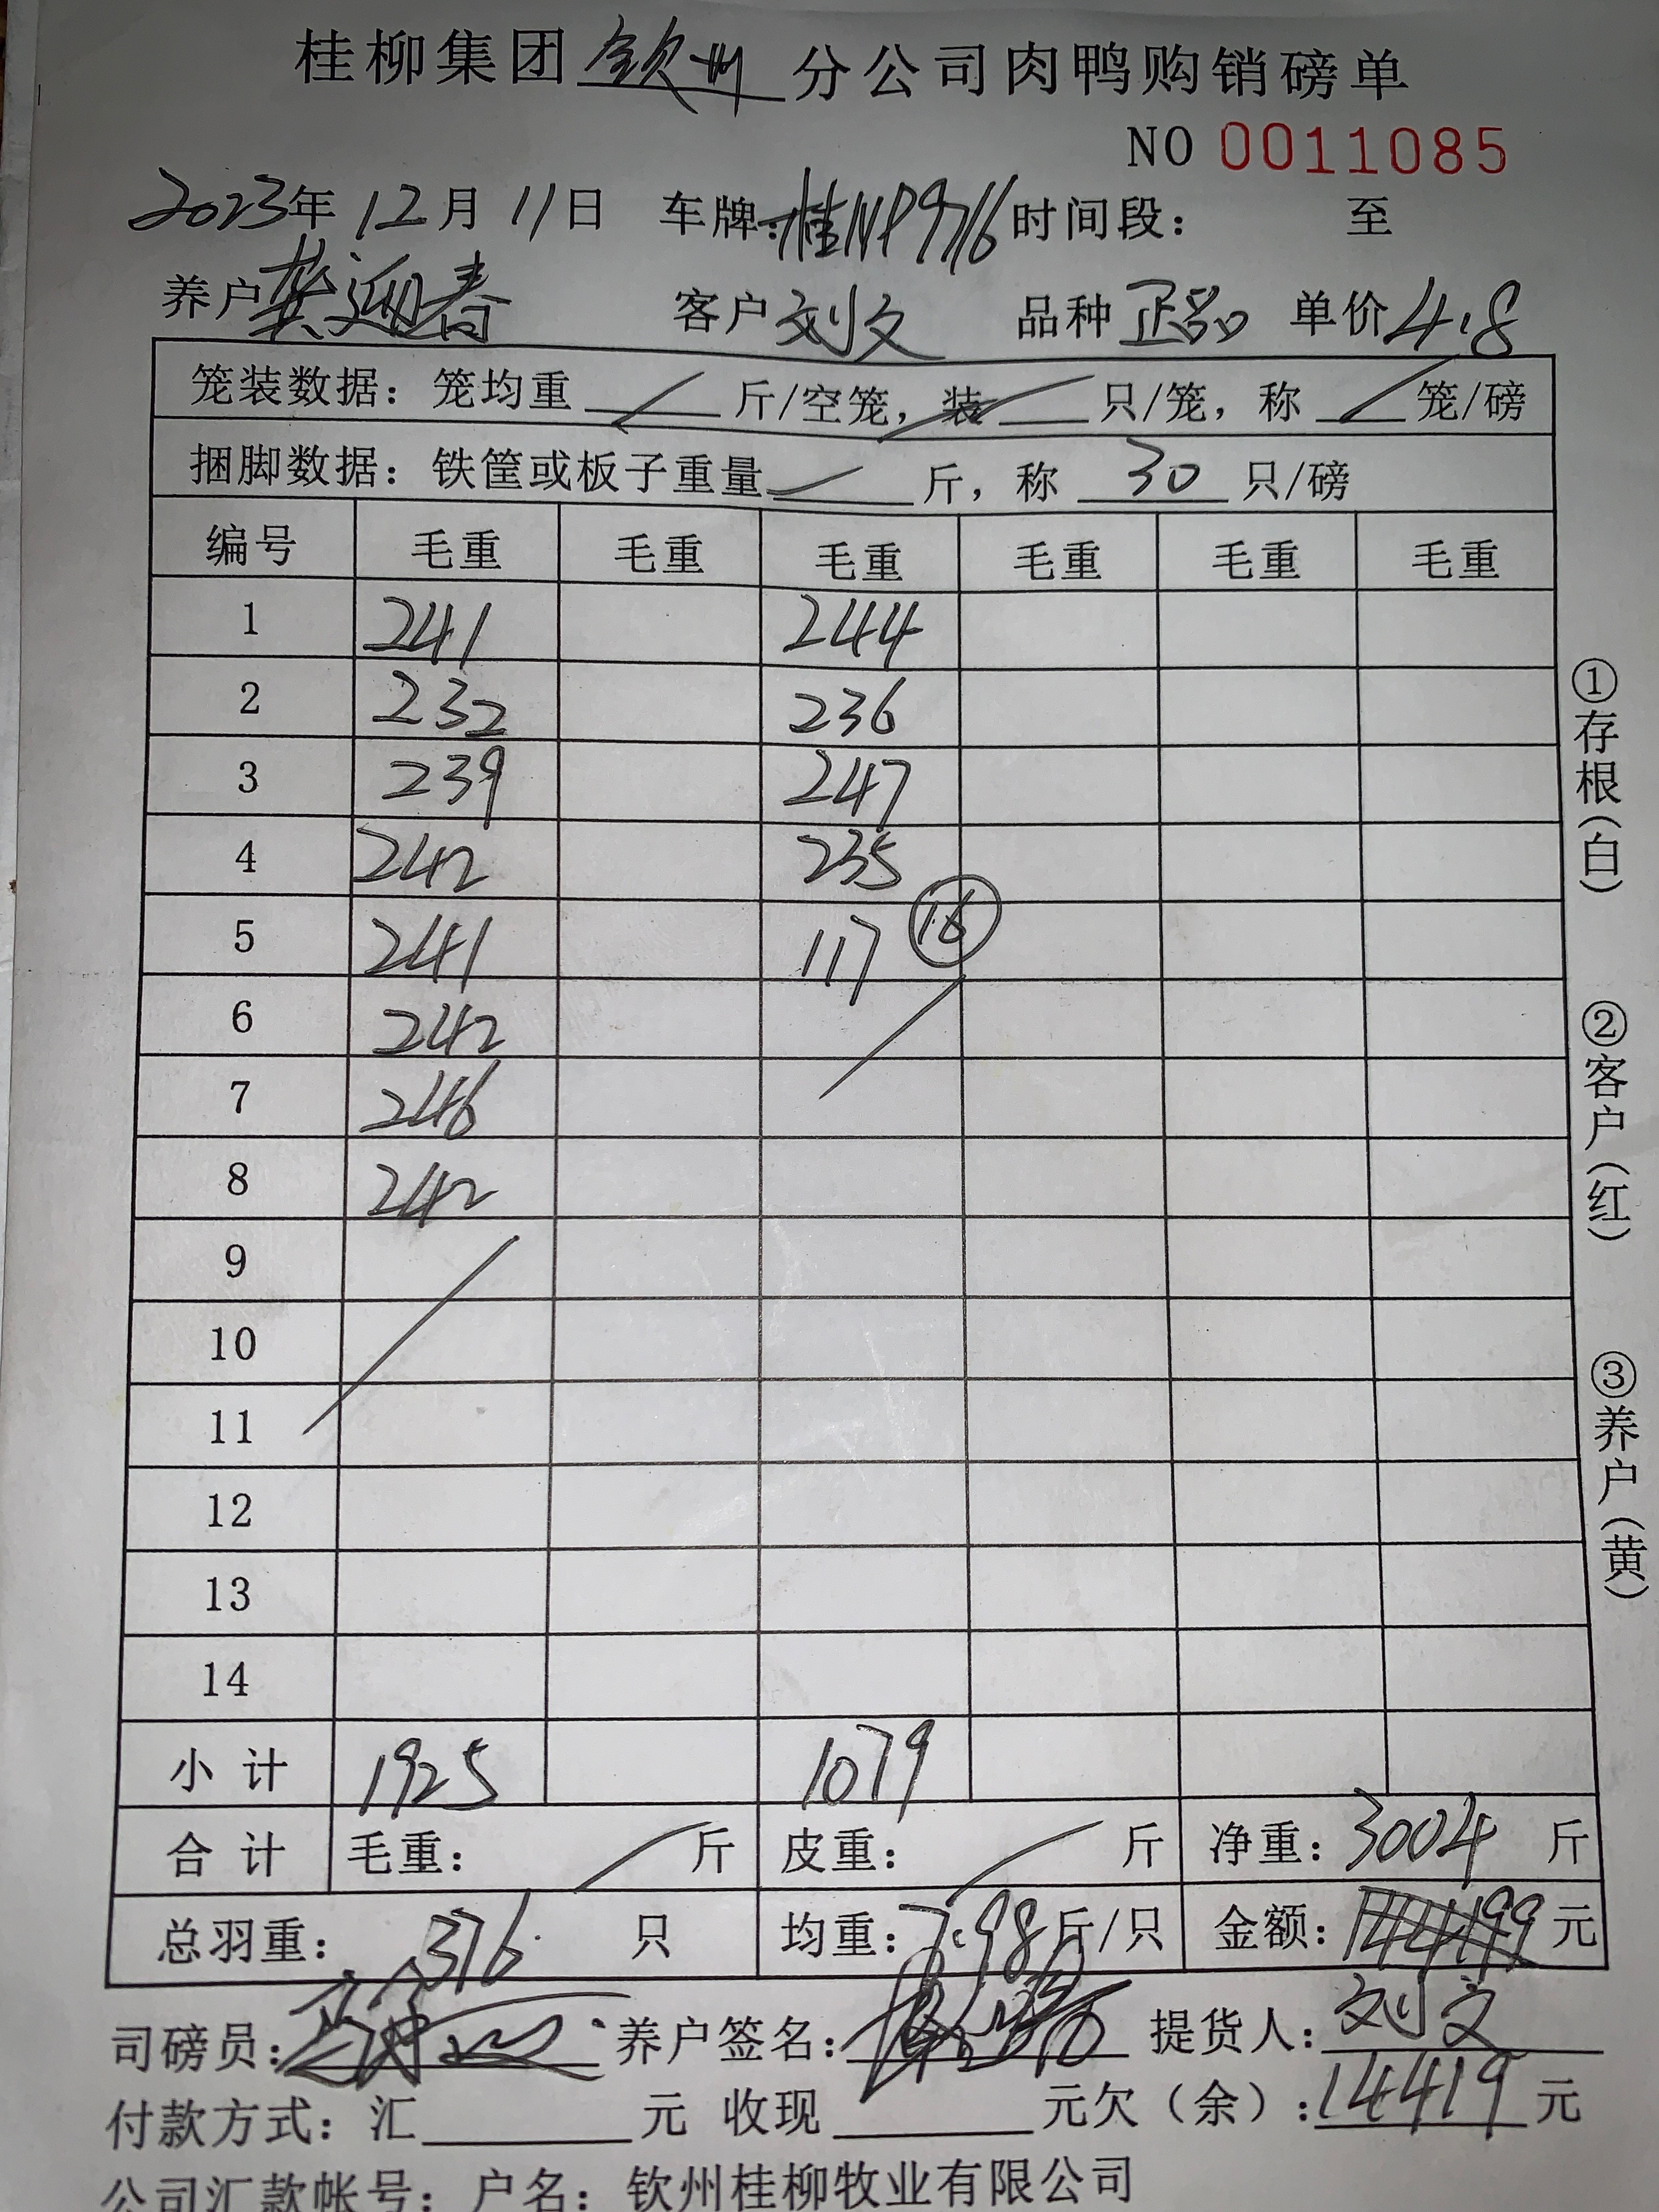 桂柳集团钦州分公司肉鸭购销磅单
NO 0011085
2023年12月11日 车牌:桂NP9716 时间段: 至
养户龚迎春 客户刘文 品种正品 单价4.8
笼装数据: 笼均重 斤/空笼, 装 只/笼, 称 笼/磅
捆脚数据: 铁筐或板子重量 斤, 称 30 只/磅
编号 毛重 毛重 毛重 毛重 毛重 毛重
1 241 244
2 232 236
3 239 247
4 242 235
5 241 117 16
6 242
7 246
8 242
9
10
11
12
13
14
小计 1925 1079
合计 毛重: 斤 皮重: 斤 净重: 3004 斤
总羽重: 376 只 均重: 7.98斤/只 金额: 元
司磅员: 养户签名: 提货人: 刘文
付款方式: 汇 元 收现 元欠(余): 14419 元
公司汇款帐号: 户名: 钦州桂柳牧业有限公司
①存根(白)
②客户(红)
③养户(黄)